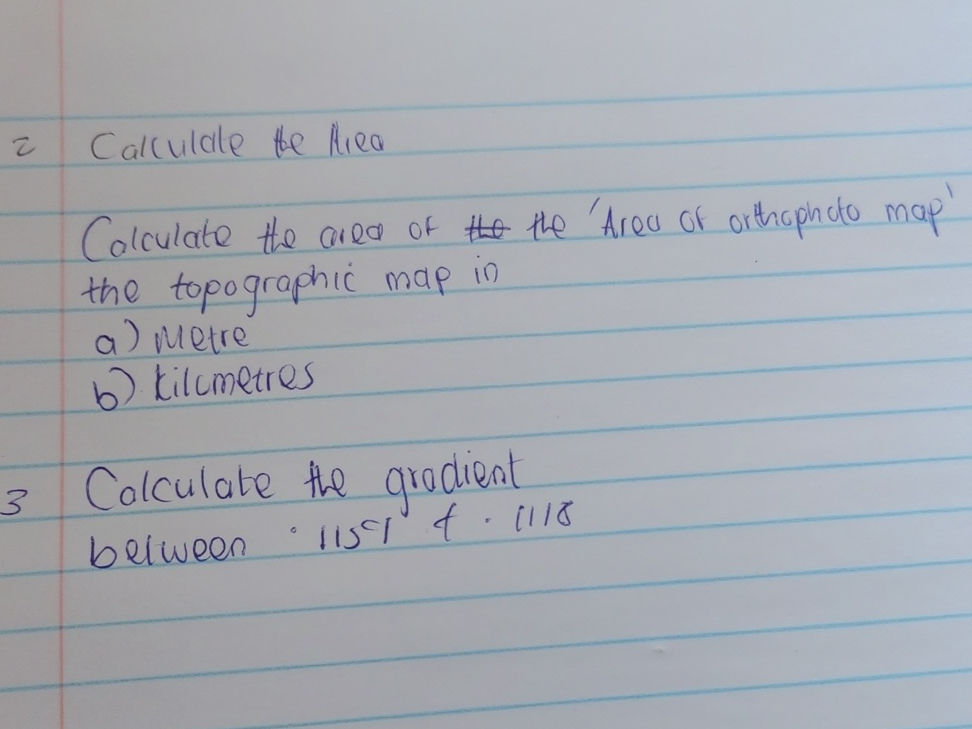 2 Calculate the Area
Calculate the area of the the 'Area of orthophoto map'
the topographic map in
a) Metre
b) kilometres
3 Calculate the gradient
between · 1159 & · 1118